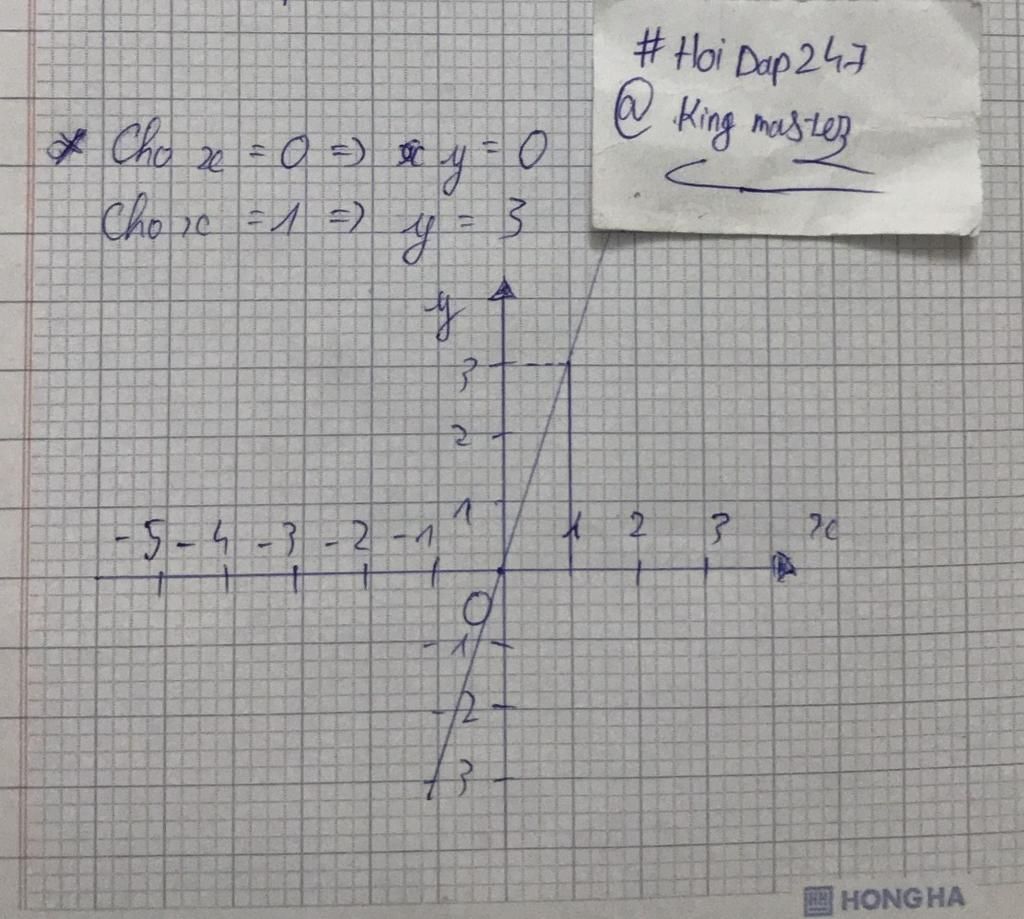 # Hoi Dap 247
@ King master
* Cho x = 0 => y = 0
Cho x = 1 => y = 3
y
3
2
1
-5 -4 -3 -2 -1 1 2 3 x
O
-1
-2
-3
HONG HA